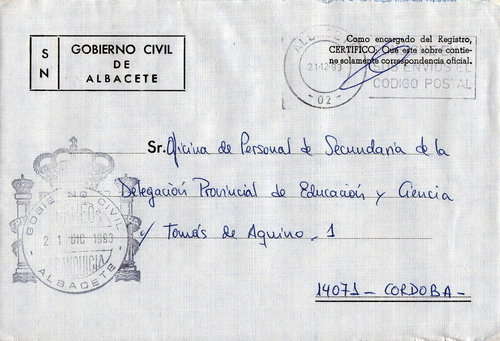 S
N
GOBIERNO CIVIL
DE
ALBACETE
Como encargado del Registro,
CERTIFICO: Que este sobre contie-
ne solamente correspondencia oficial.
21-12-93
CODIGO POSTAL
- 02 -
Sr. Oficina de Personal de Secundaria de la
Delegación Provincial de Educación y Ciencia
c/ Tomás de Aquino - 1
14071 - CORDOBA -
GOBIERNO CIVIL
21 DIC 1993
FRANQUICIA
- ALBACETE -